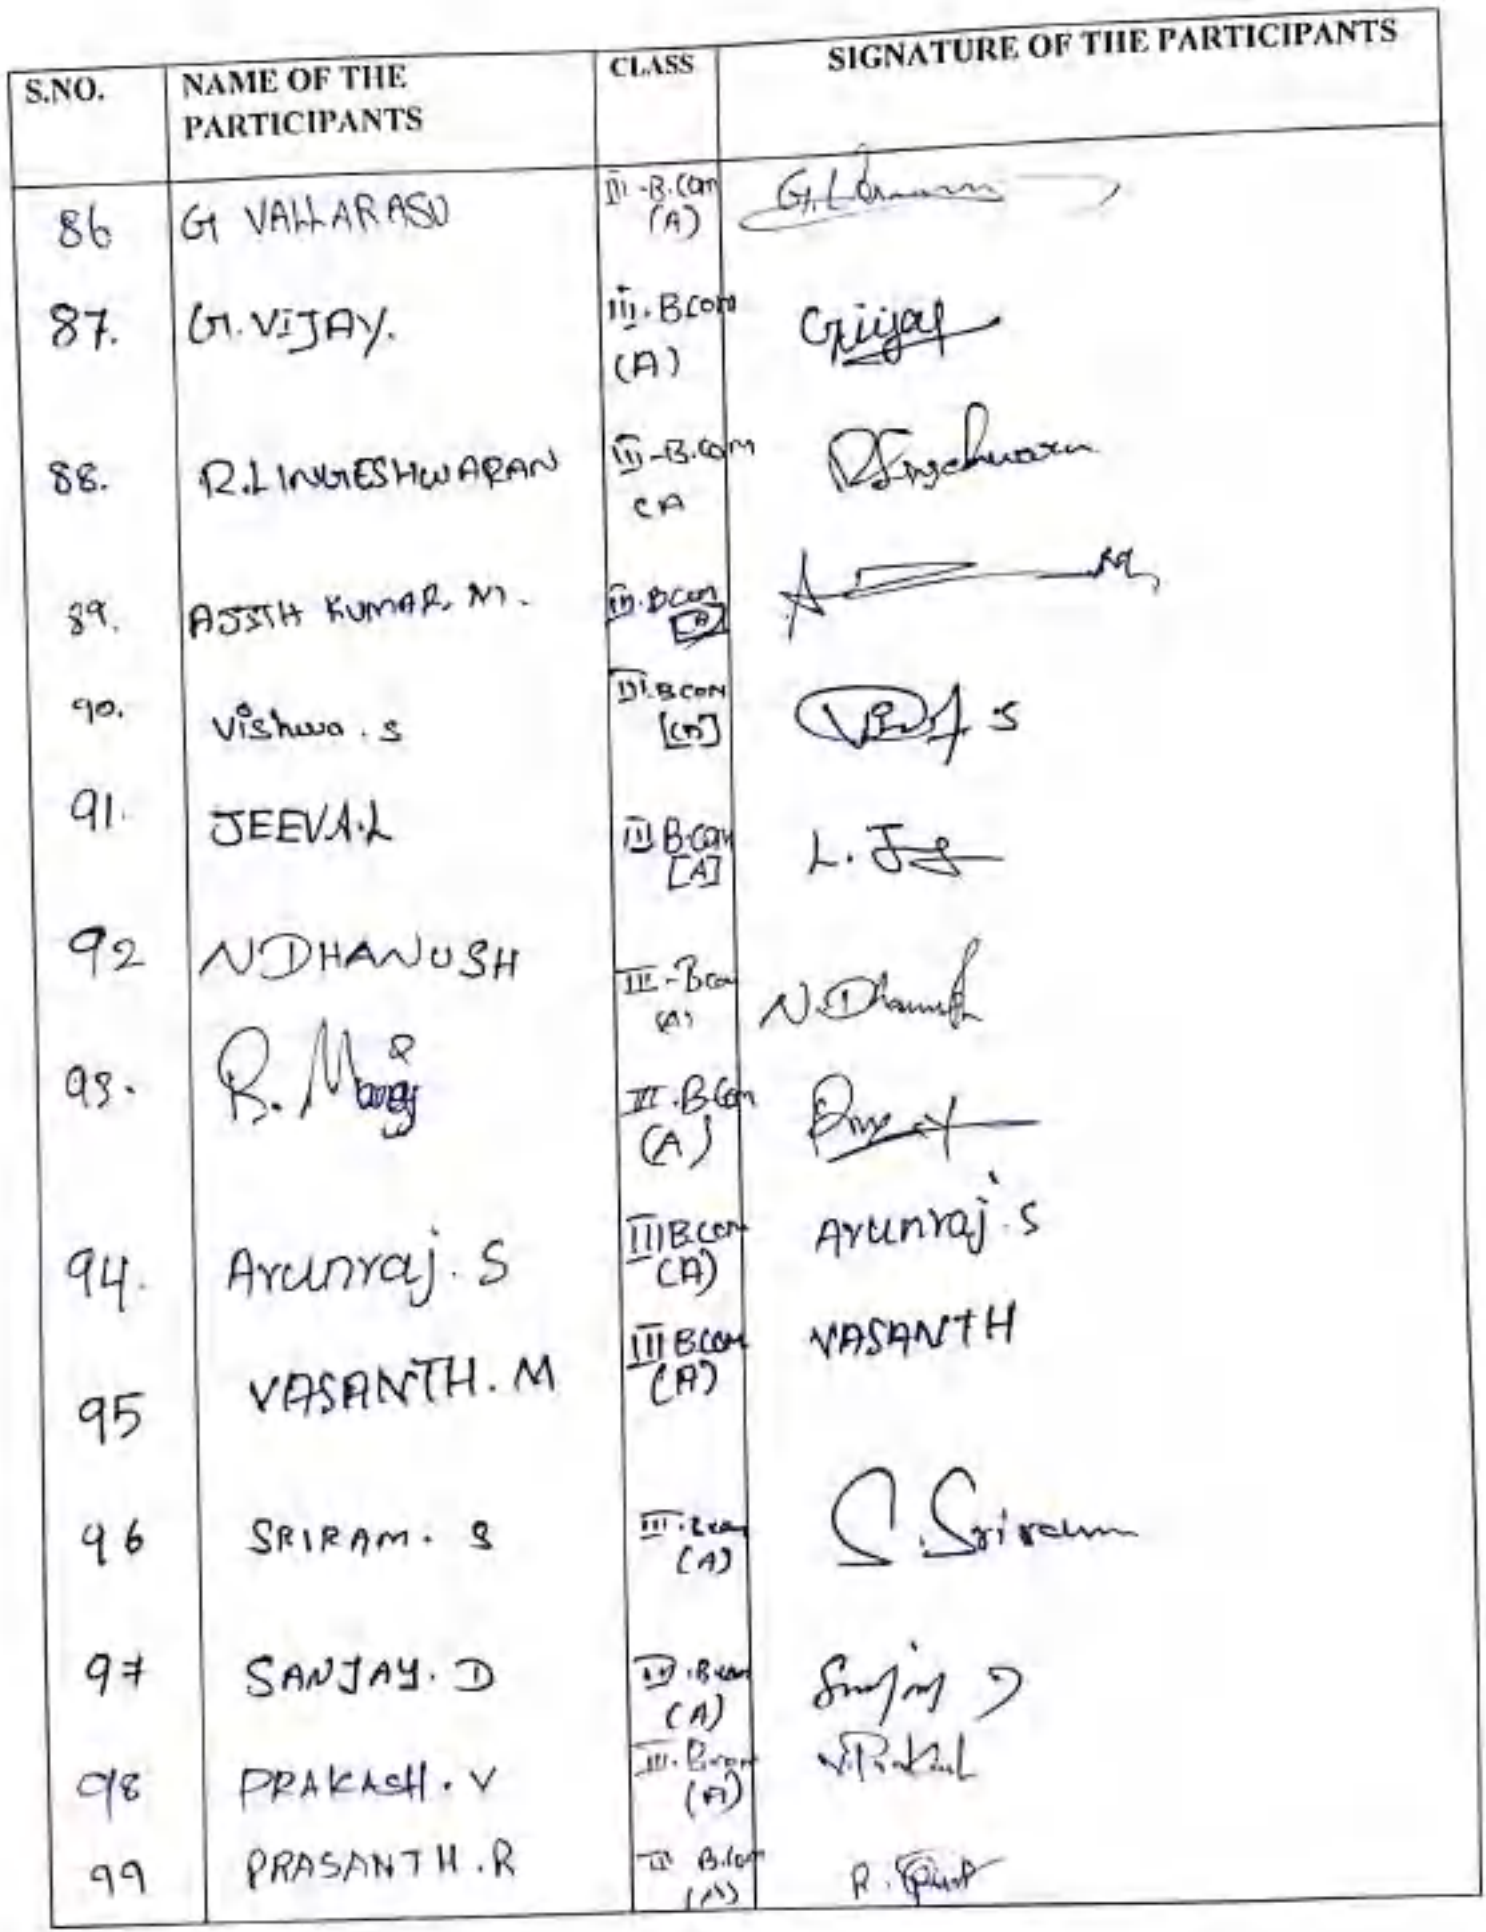 S.NO. NAME OF THE PARTICIPANTS CLASS SIGNATURE OF THE PARTICIPANTS
86 G VALLARASU III-B.Com (A)
87. G.VIJAY. III.BCom (A) G.Vijay
88. R.LINGESHWARAN III-B.com (A R.Lingeshwaran
89. AJITH KUMAR. M. III.BCom [A]
90. Vishwa. S III.BCOM [(A)] S
91. JEEVA.L III B.Com [A] L. J
92 N DHANUSH III-Bcom (A) N.Dhanush
93. R. Manoj III.BCom (A)
94. Arunraj. S III B.com (A) Arunraj. S
95 VASANTH. M III BCom (A) VASANTH
96 SRIRAM. S III.Bcom (A) S.Sriram
97 SANJAY. D III.Bcom (A) Sanjay D
98 PRAKASH. V III.B.com (A) V.Prakash
99 PRASANTH.R III B.Com (A) R.